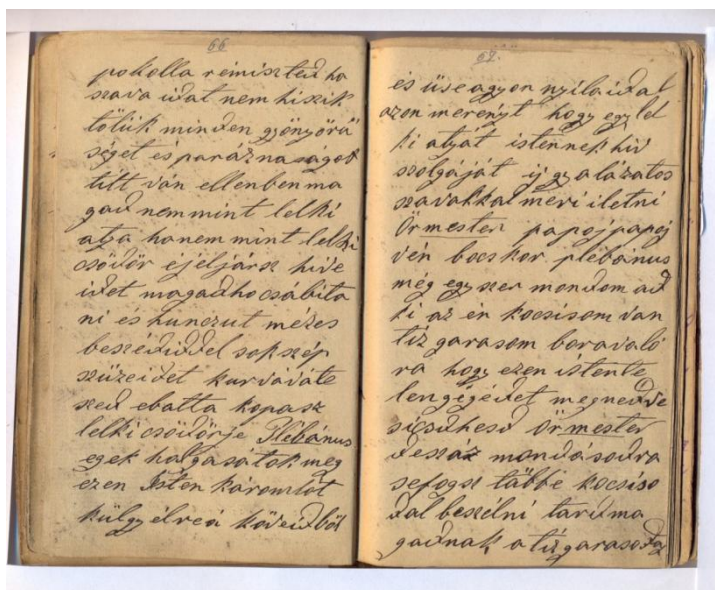 66
pokolla rémiszted ha
szava idat nem hiszik
tölük minden gyönyörü
séget és paráznaságot
tilt ván ellenben ma
gad nem mint lelki
atya hanem mint lelki
csödör éjeljársz hive
idet magadho csábita
ni és hunczut mézes
beszédiddel sok szép
szüzeidet kurvává te
szed ebatta kopasz
lelki csödörje Plébánus
egek halgasátok meg
ezen Isten káromlót
küdbgy
67.
és üse agyon nyilaidal
azon merényt hogy egy lel
ki atyát istennek hiv
szolgáját ij gyalázatos
szavakkal meri iletni
Örmester papoj papoj
vén bocskor plébánus
még egyszer mondom ad
ki az én kocsisom van
tiz garasom boravaló
ra hogy ezen istente
lengégédet megnedve
sicsdhesd Örmester
deszáz mondásodra
sefogsz többe kocsiso
dal beszélni tarcma
gadnak a tiz garasodta